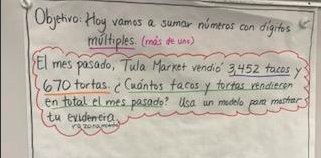 Objetivo: Hoy vamos a sumar números con dígitos
múltiples. (más de uno)
El mes pasado, Tula Market vendió 3,452 tacos y
670 tortas. ¿Cuántos tacos y tortas vendieron
en total el mes pasado? Usa un modelo para mostrar
tu evidencia.
razonamiento